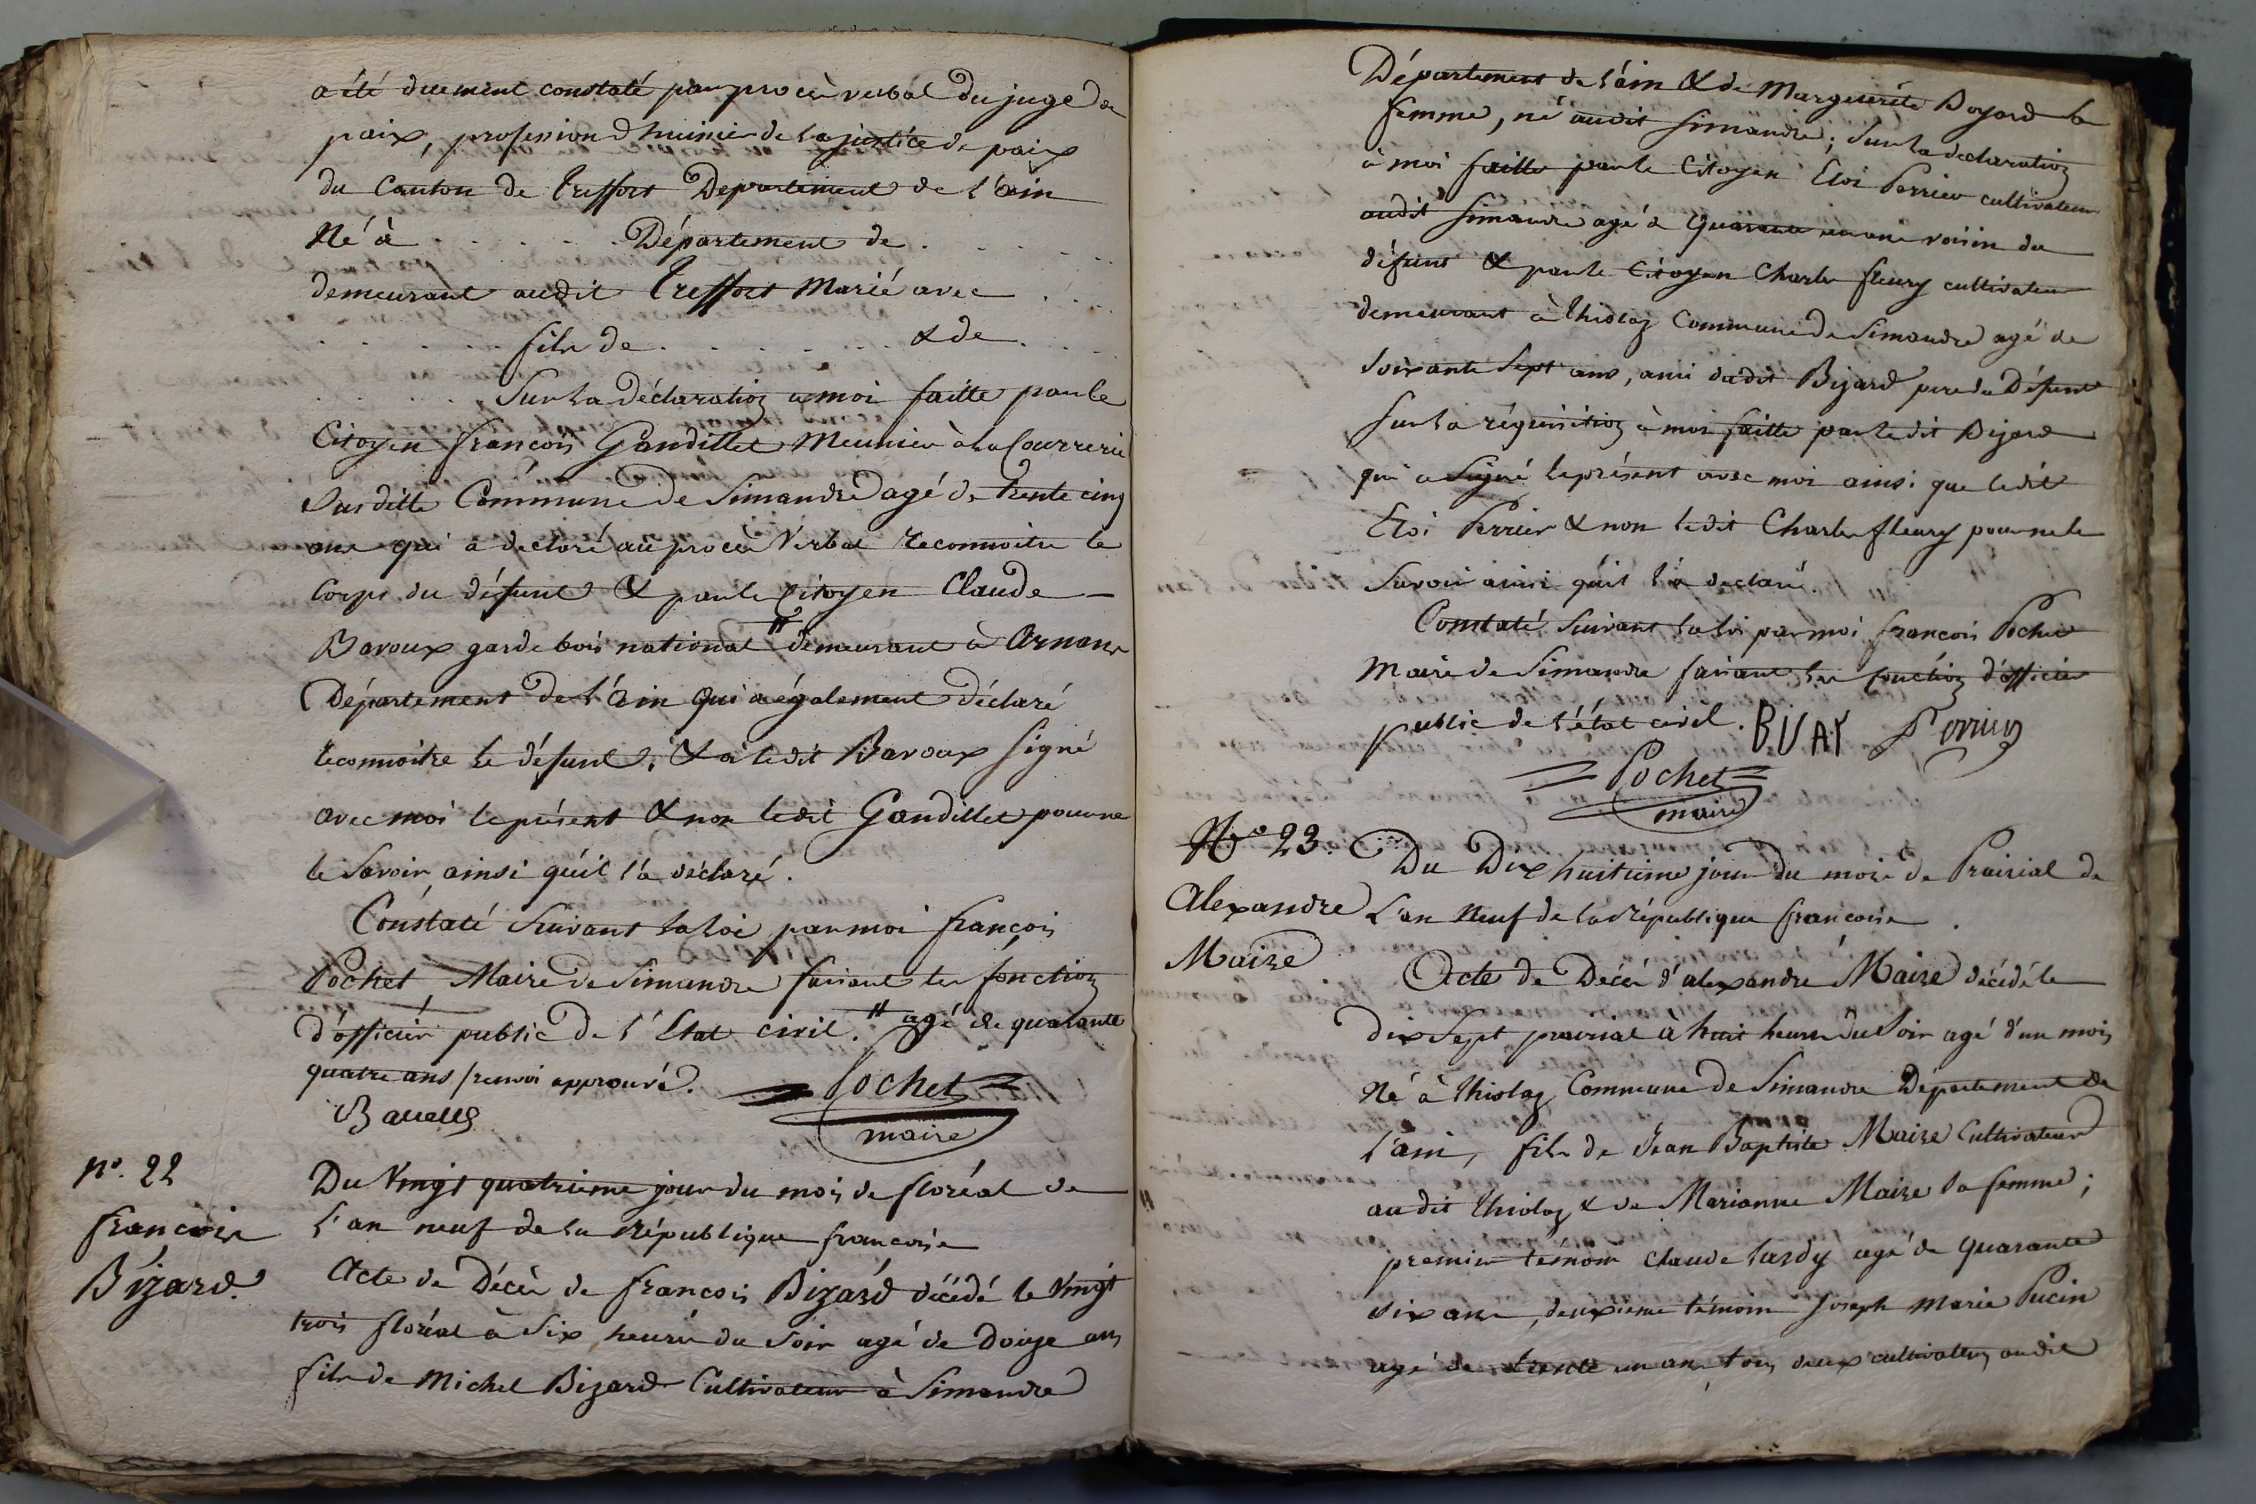 a été duement constaté par procès verbal du juge de
paix, profession d'huissier de la justice de paix
du Canton de Treffort Departement de l'ain
Né à . . . . . . Département de . . . .
demeurant audit Treffort Marié avec . . .
. . . . . . fils de . . . . . . . & de . . . .
. . . . . . Sur la déclaration à moi faitte par le
Citoyen françois Gandillet Meunier à la Courrerie
Susditte Commune de Simandre agé de trente cinq
ans qui a declaré au procès Verbal reconnoitre le
Corps du défunt & par le Citoyen Claude —
Bavoux garde bois national # demeurant à Arnans
Département de l'ain qui a également déclaré
reconnoitre le défunt. & a ledit Bavoux signé
avec moi le présent & non ledit Gandillet pour ne
le savoir ainsi qu'il l'a déclaré.
Constaté Suivant la loi par moi françois
Pochet Maire de Simandre faisant les fonction
d'officier public de l'Etat civil. # agé de quarante
quatre ans / renvoi approuvé.
Pochet
maire
N°. 22
françois
Bizard.
Du Vingt quatrieme jour du mois de floréal de
l'an neuf de la république françoise
Acte de Décès de françois Bizard décédé le Vingt
trois floréal à Six heures du Soir agé de Douze ans
fils de Michel Bizard Cultivateur à Simandre
Département de l'ain & de Marguerite Boyard sa
femme, né audit Simandre; Sur la declaration
à moi faitte par le Citoyen Eloi Perrier cultivateur
audit Simandre agé de quarante un ans voisin du
défunt & par le Citoyen Charles fleury cultivateur
demeurant à Thiolaz Commune de Simandre agé de
Soixante Sept ans, ami dudit Bizard pere du Défunt
Sur la réquisition à moi faitte par ledit Bizard
qui a Signé le présent avec moi ainsi que ledit
Eloi Perrier & non ledit Charles fleury pour ne le
Savoir ainsi qu'il l'a declaré.
Constaté Suivant la loi par moi françois Pochet
Maire de Simandre faisant les fonction d'officier
public de l'état civil. Perrier
Pochet
maire
N° 23.
Alexandre
Maire
Du Dix huitieme jour du mois de Prairial de
L'an Neuf de la République françoise.
Acte de Décès d'alexandre Maire décédé le
dix Sept prairial a huit heures du Soir agé d'un mois
Né à Thiolaz Commune de Simandre Département de
l'ain, fils de Jean Baptiste Maire Cultivateur
audit Thiolaz & de Marianne Maire sa femme;
premier témoin Claude tardy agé de quarante
six ans, deuxieme témoin Joseph Marie Pucin
agé de trente un an, tous deux cultivateurs audit